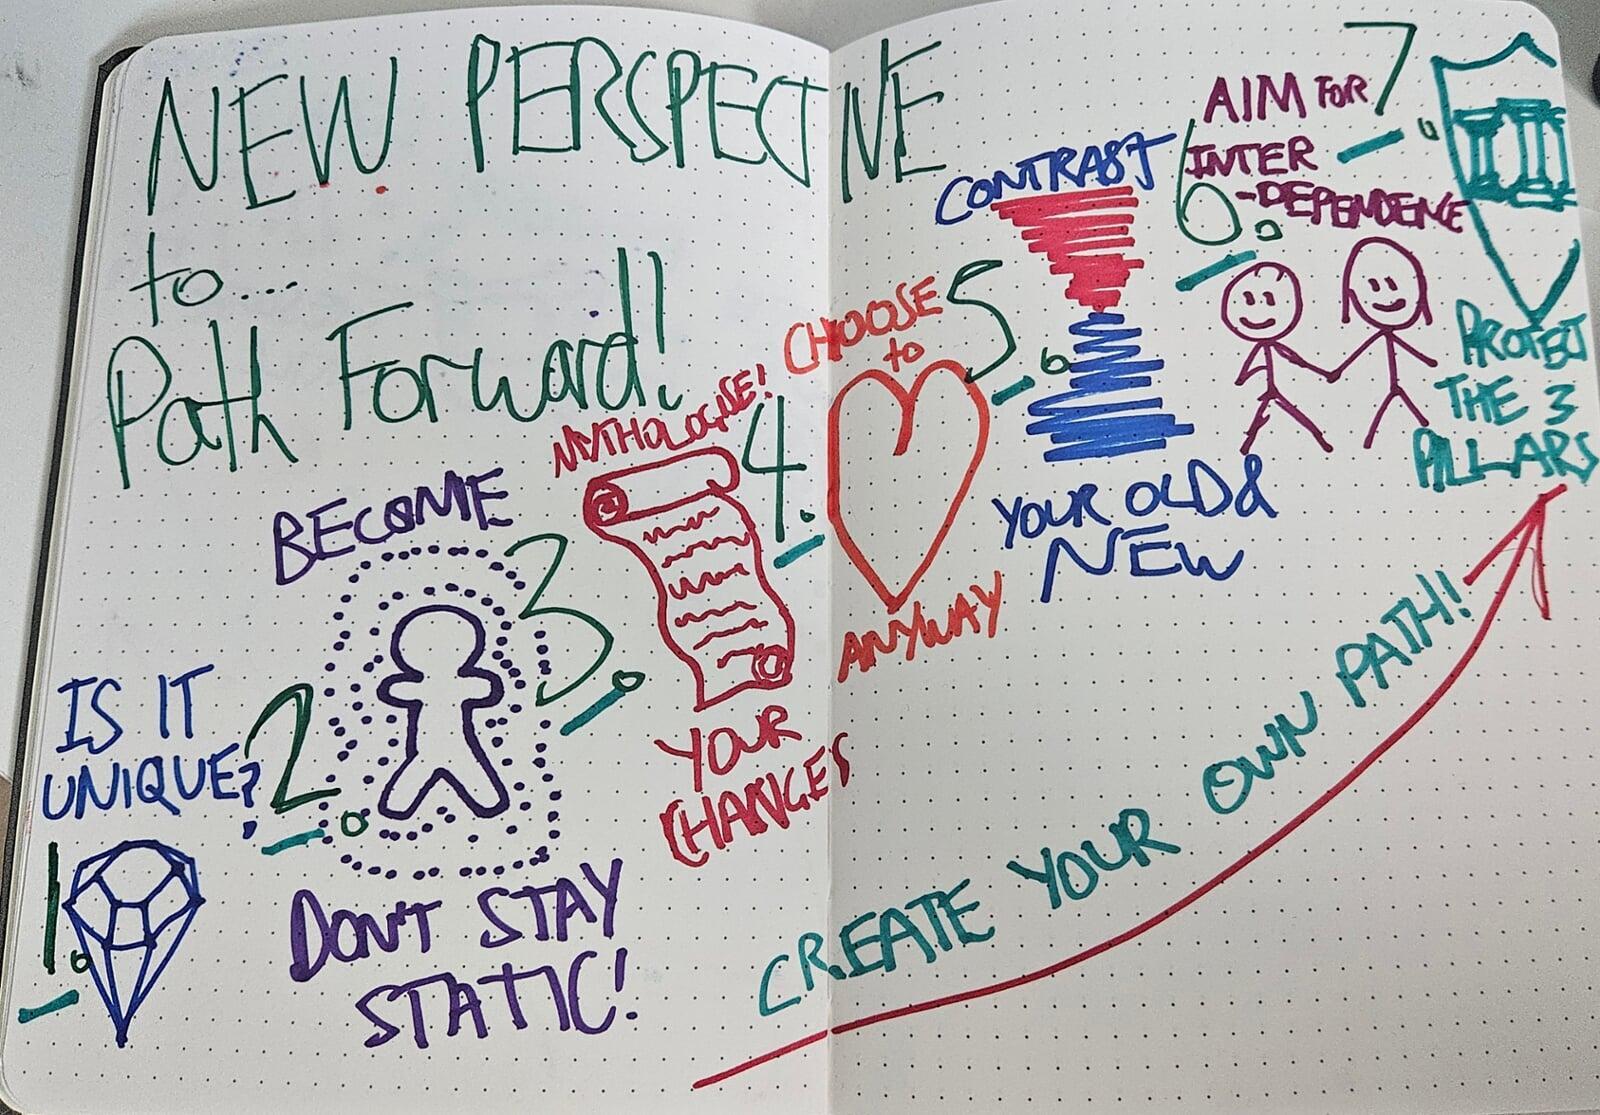 NEW PERSPECTIVE
to....
Path Forward!
1.
IS IT
UNIQUE?
2.
BECOME
DON'T STAY
STATIC!
3.
MYTHOLOGISE!
YOUR
CHANGES
4.
CHOOSE
to
ANYWAY
5.
CONTRAST
YOUR OLD &
NEW
6.
AIM FOR
INTER
-DEPENDENCE
7.
PROTECT
THE 3
PILLARS
CREATE YOUR OWN PATH!